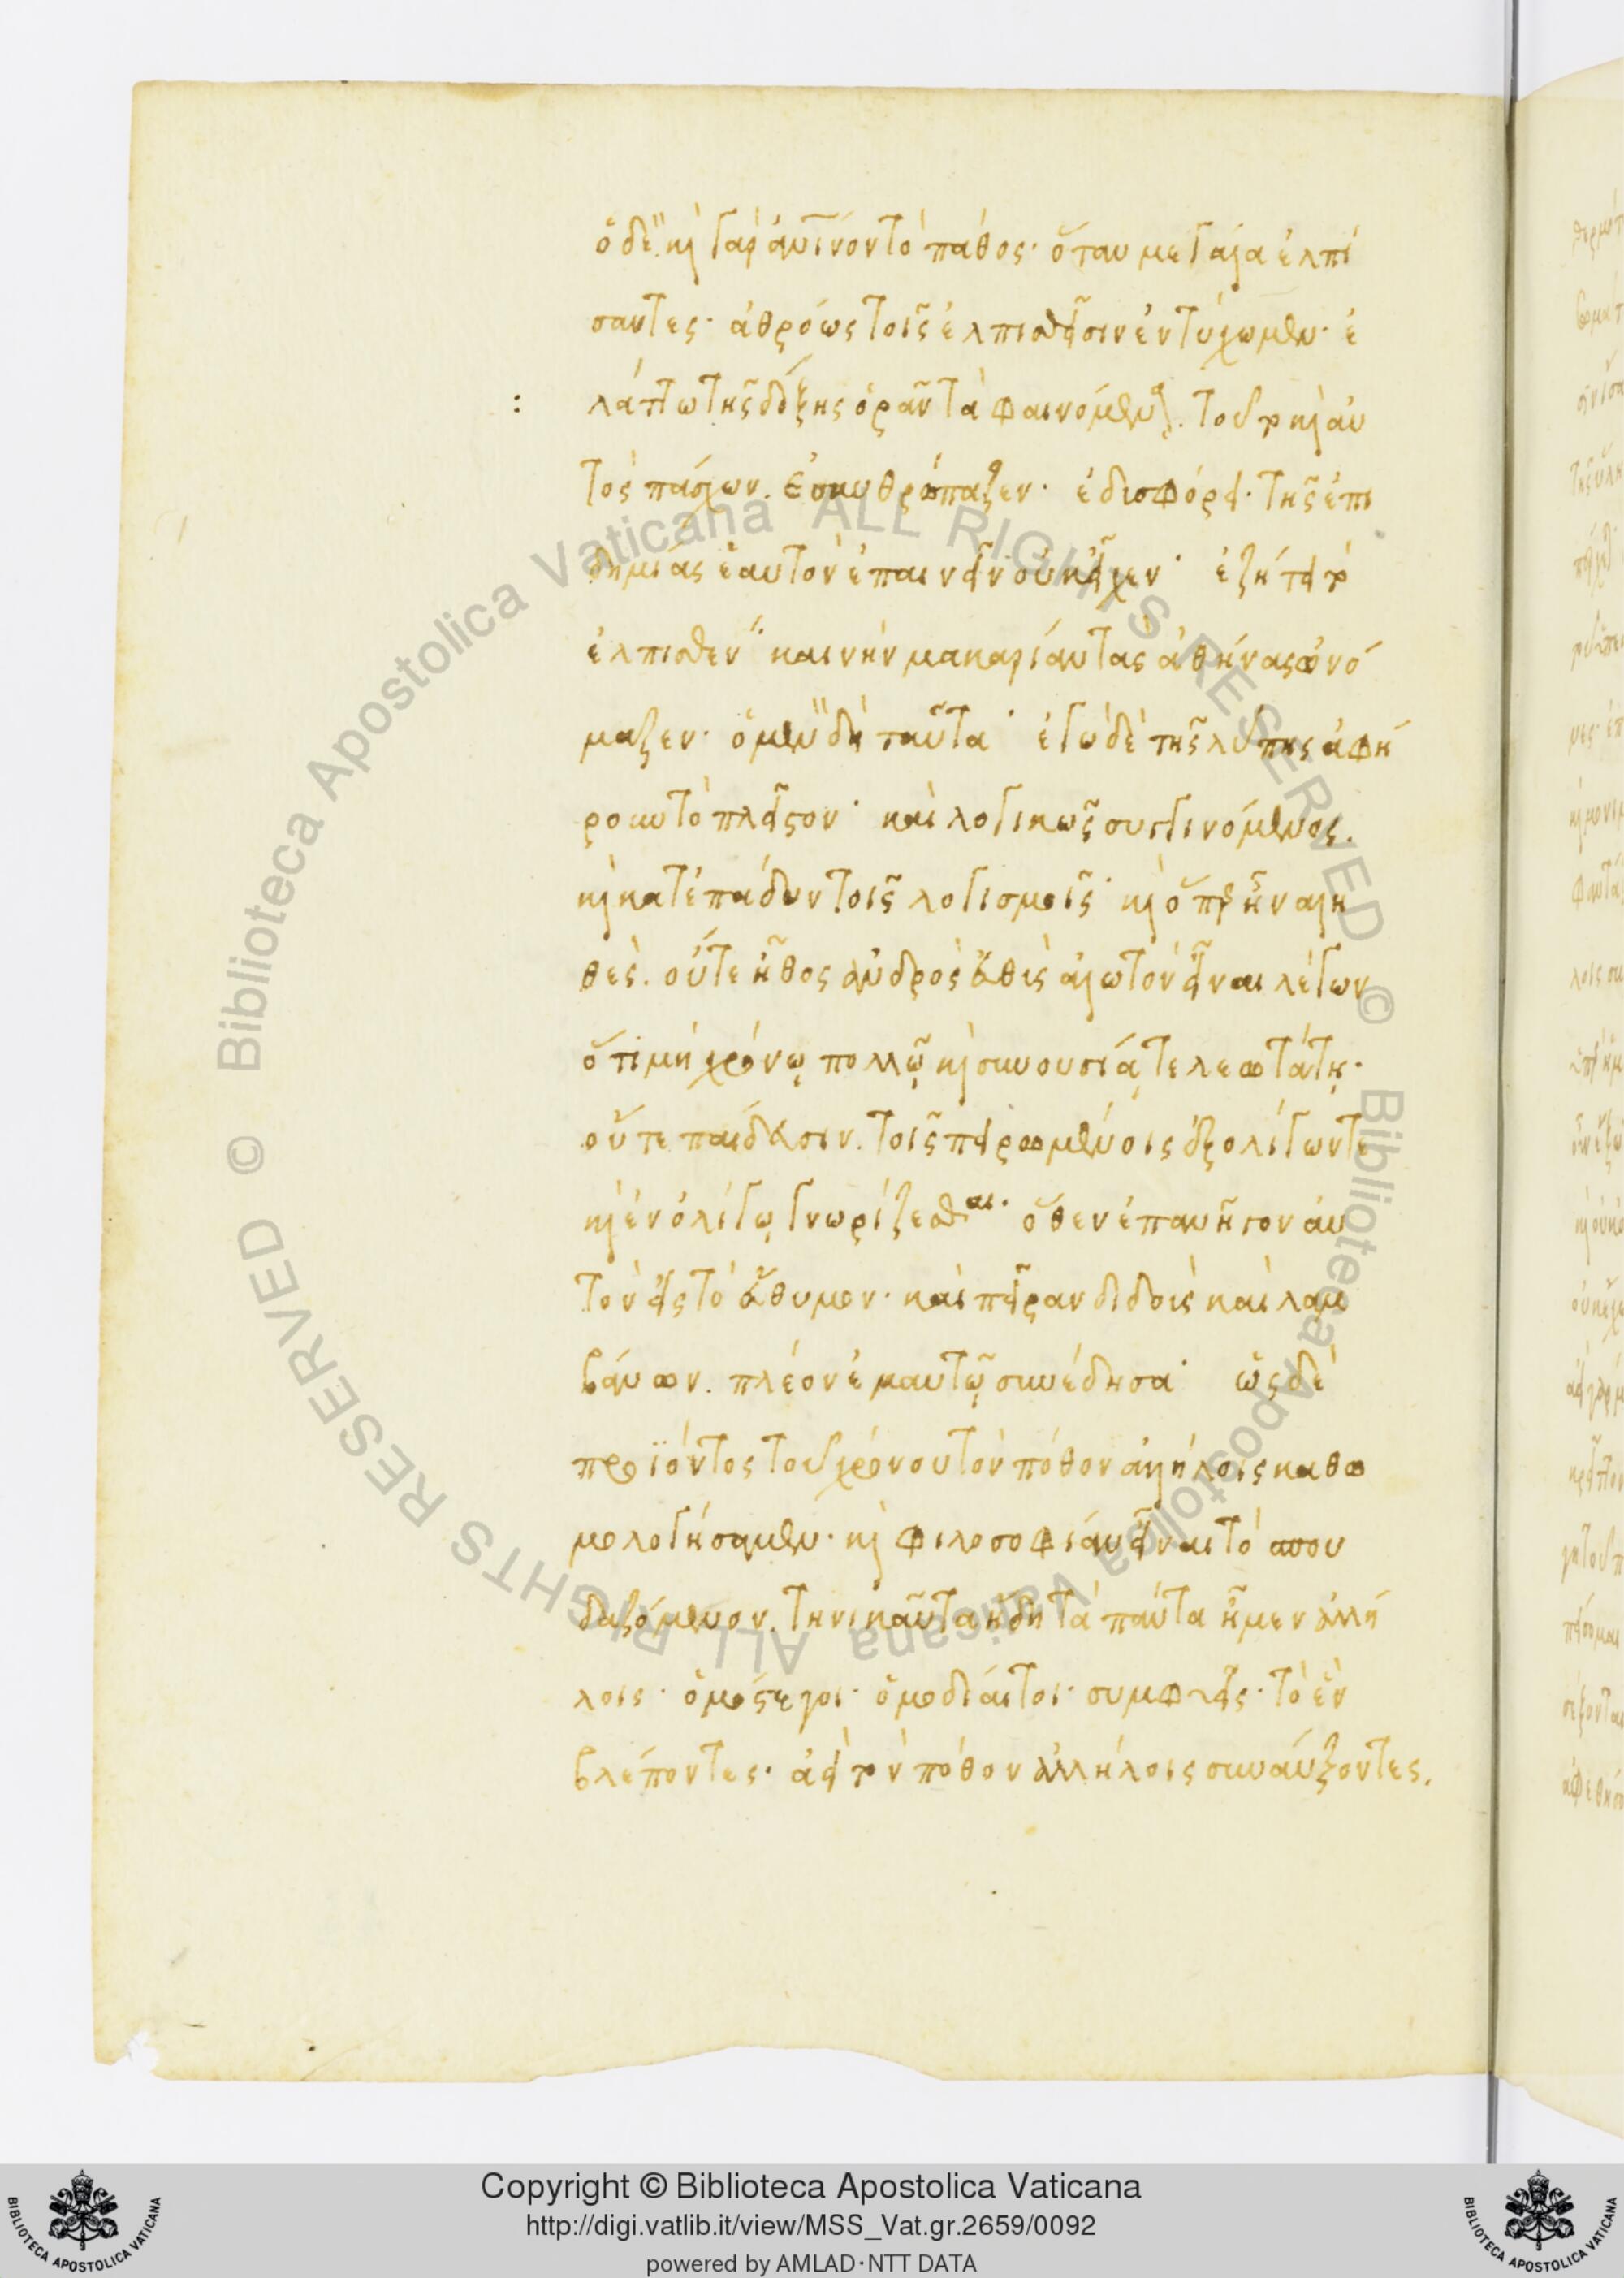 ὁ δὲ· καὶ γὰρ ἀνθρώπινον τὸ πάθος· ὅταν μεγάλα ἐλπί
σαντες· ἀθρόως τοῖς ἐλπισθεῖσιν ἐντύχωμεν· ἐ
: λάττω τῆς δόξης ὁρᾶν τὰ φαινόμενα. τοῦτο καὶ αὐ
τὸς πάσχων. ἐσκυθρώπαζεν· ἐδυσφόρει· τῆς ἐπι
δημίας ἑαυτὸν ἐπαινεῖν οὐκ εἶχεν· ἐζήτει τὸ
ἐλπισθὲν· κενὴν μακαρίαν τὰς ἀθήνας ὠνό
μαζεν· ὁ μὲν δὴ ταῦτα· ἐγὼ δὲ τῆς λύπης ἀφῄ
ρουν τὸ πλεῖστον· καὶ λογικῶς συγγινόμενος.
καὶ κατεπάδων τοῖς λογισμοῖς· καὶ ὅπερ ἦν ἀλη
θὲς. οὔτε ἦθος ἀνδρὸς εὐθὺς ἁλωτὸν εἶναι λέγων
ὅτι μὴ χρόνῳ πολλῷ καὶ συνουσίᾳ τελεωτάτῃ·
οὔτε παίδευσιν. τοῖς πειρωμένοις ἐξ ὀλίγων τε
καὶ ἐν ὀλίγῳ γνωρίζεσθαι· ὅθεν ἐπανῆγον αὐ
τὸν εἰς τὸ εὔθυμον· καὶ πεῖραν διδοὺς καὶ λαμ
βάνων. πλέον ἐμαυτῷ συνέδησα· ὡς δὲ
προϊόντος τοῦ χρόνου τὸν πόθον ἀλλήλοις καθω
μολογήσαμεν· καὶ φιλοσοφίαν εἶναι τὸ σπου
δαζόμενον. τηνικαῦτα ἤδη τὰ πάντα ἦμεν ἀλλή
λοις· ὁμόστεγοι· ὁμοδίαιτοι· συμφυεῖς· τὸ ἓν
βλέποντες· ἀεὶ τὸν πόθον ἀλλήλοις συναύξοντες.
Copyright © Biblioteca Apostolica Vaticana
http://digi.vatlib.it/view/MSS_Vat.gr.2659/0092
powered by AMLAD·NTT DATA